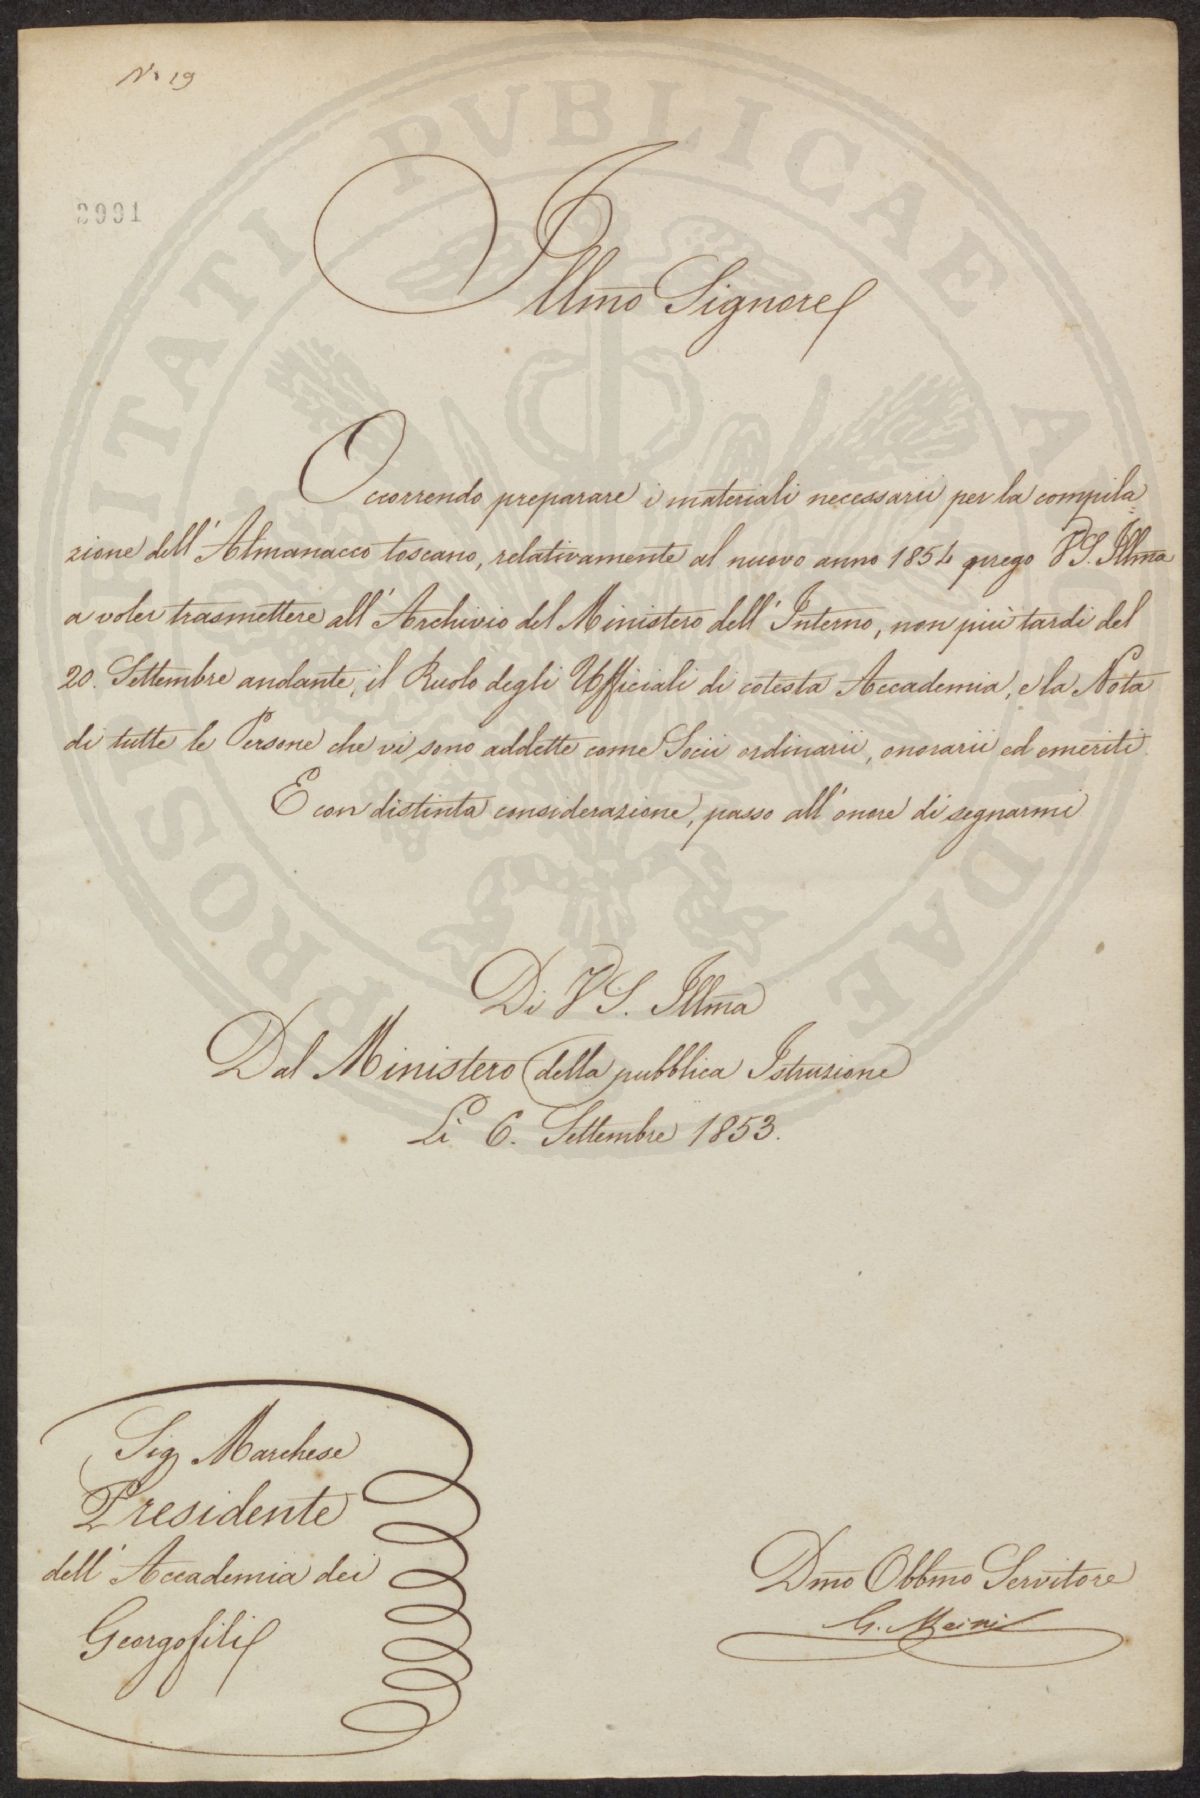 N. 19
2991
PROSPERITATI PVBLICAE AVGENDAE
Illmo Signore
Occorrendo preparare i materiali necessarii per la compila=
zione dell'Almanacco toscano, relativamente al nuovo anno 1854 prego VS. Illma
a voler trasmettere all'Archivio del Ministero dell'Interno, non più tardi del
20. Settembre andante, il Ruolo degli Ufficiali di cotesta Accademia, e la Nota
di tutte le Persone che vi sono addette come Socii ordinarii, onorarii ed emeriti.
E con distinta considerazione, passo all'onore di segnarmi
Di VS. Illma
Dal Ministero della pubblica Istruzione
Li 6. Settembre 1853.
Sig Marchese
Presidente
dell'Accademia dei
Georgofili
Dmo Obbmo Servitore
G. Meini